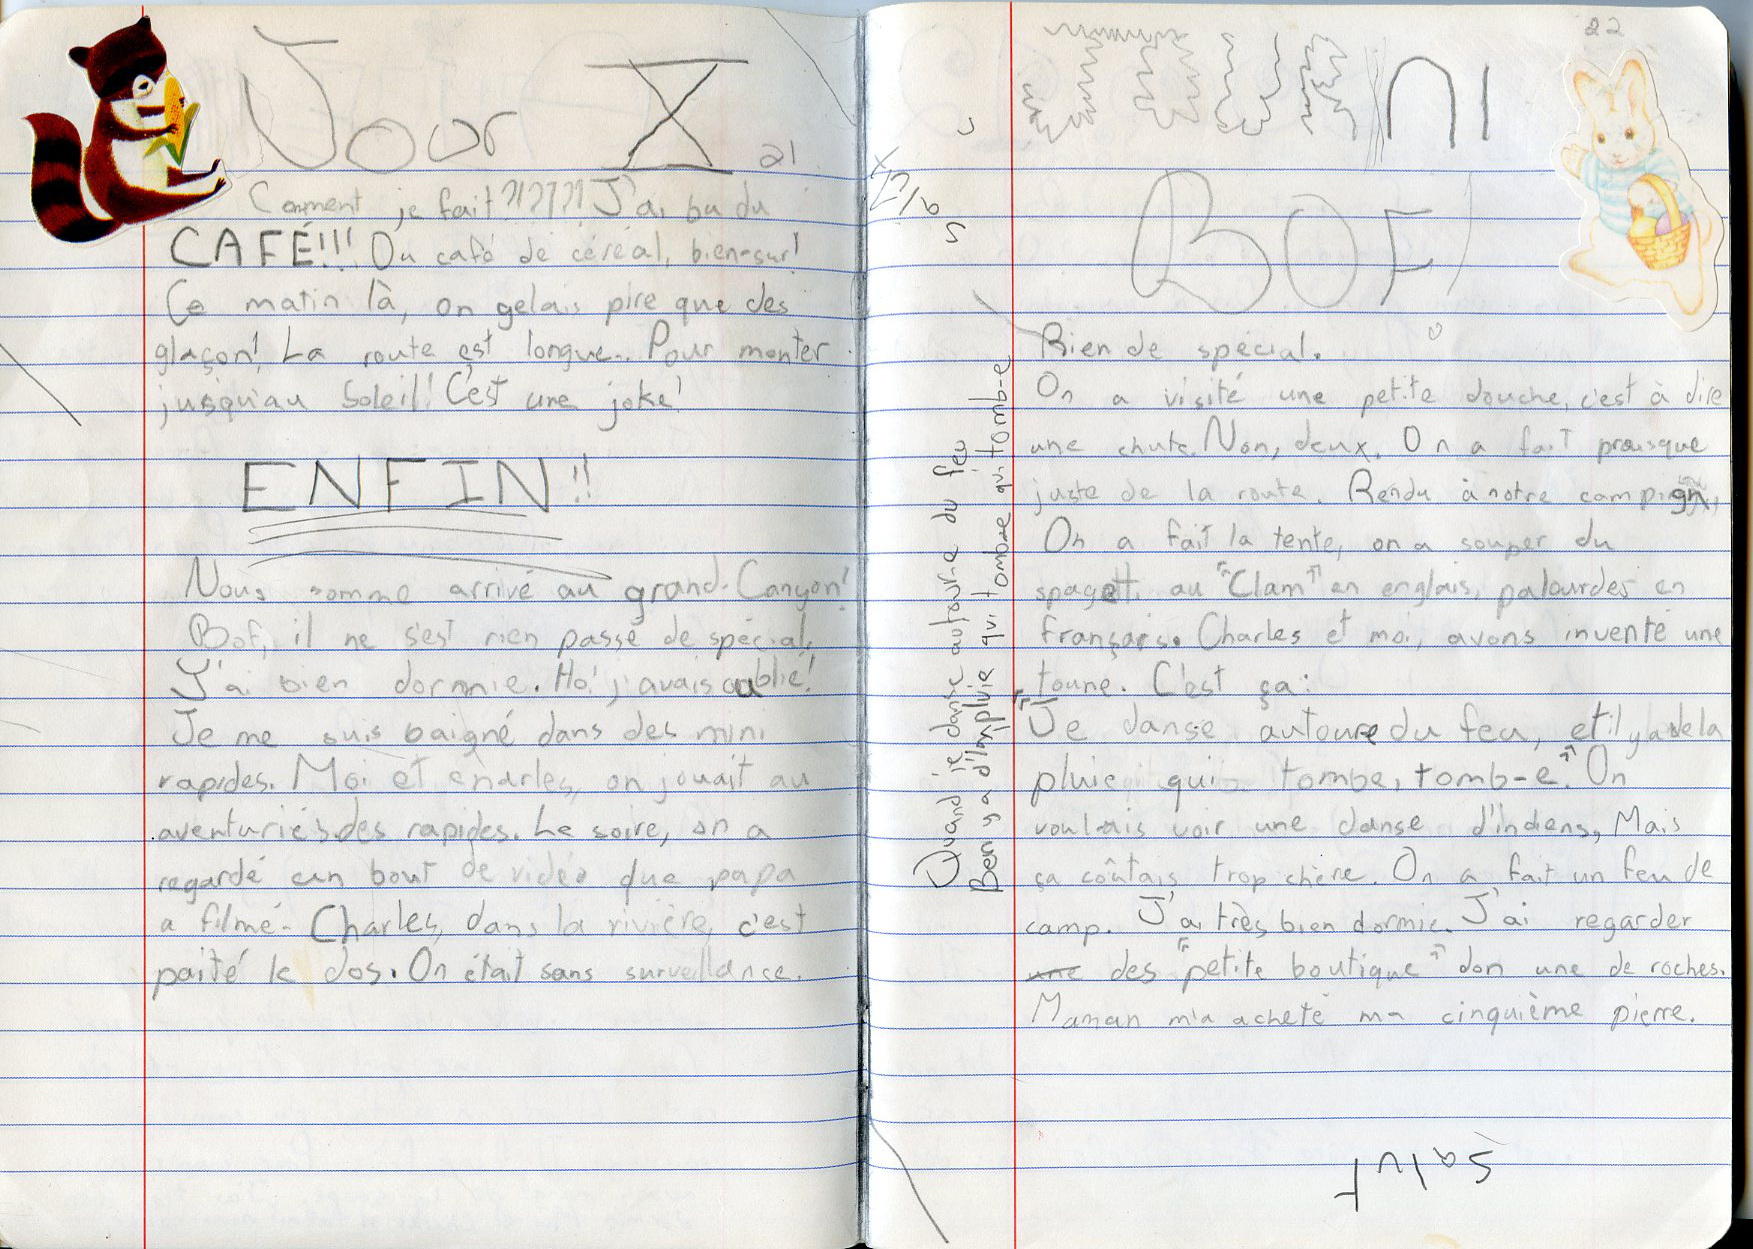 Jour X
21
Comment je fait ?!?!?! J'ai bu du
CAFÉ!!! Du café de céréal, bien-sur!
Ce matin là, on gelais pire que des
glaçon! La route est longue... Pour monter
jusqu'au Soleil! C'est une joke!
ENFIN!!
Nous somme arrivé au grand-Canyon!
Bof, il ne s'est rien passé de spécial.
J'ai bien dormie. Ho! j'avais oublié!
Je me suis baigné dans des mini
rapides. Moi et charles, on jouait au
aventuriés des rapides. Le soire, on a
regardé un bout de vidéo que papa
a filmé. Charles, dans la rivière, c'est
paité le dos. On était sans surveillance.
22
BOF!
Rien de spécial.
On a visité une petite douche, c'est à dire
une chute. Non, deux. On a fait presque
juste de la route. Rendu à notre
On a fait la tente, on a souper du
spagetti au "Clam" en englais, palourdes en
français. Charles et moi, avons inventé une
toune. C'est ça:
"Je danse autoure du feu, et il y a de la
pluie qui tombe, tomb-e". On
voulais voir une danse d'indiens, Mais
ça coûtais trop chère. On a fait un feu de
camp. J'ai très bien dormie. J'ai regarder
des "petite boutique" don une de roches.
Maman m'a acheté ma cinquième pierre.
Quand je danse autour-e du feu
Ben y a d'la pluie qui tombe qui tomb-e
salut
salut